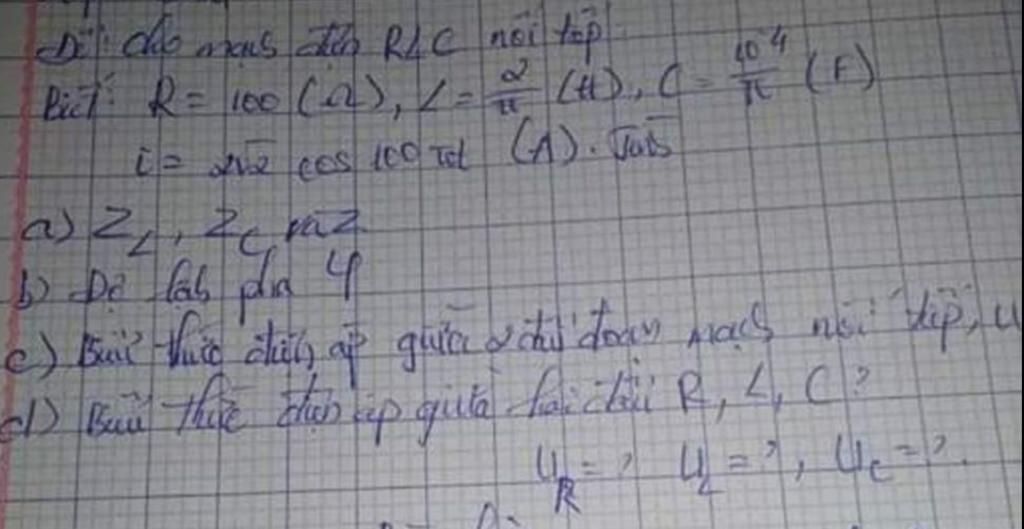 Đề: cho mạch điện RLC nối tiếp.
Biết: R = 100 (Ω), L = 2/π (H), C = 10⁻⁴/π (F)
i = 2√2 cos 100πt (A). Tính
a) Z_L, Z_C và Z
b) Độ lệch pha φ
c) Biểu thức điện áp giữa 2 đầu đoạn mạch nối tiếp, u
d) Biểu thức điện áp giữa hai đầu R, L, C?
u_R = ? u_L = ?, u_C = ?.